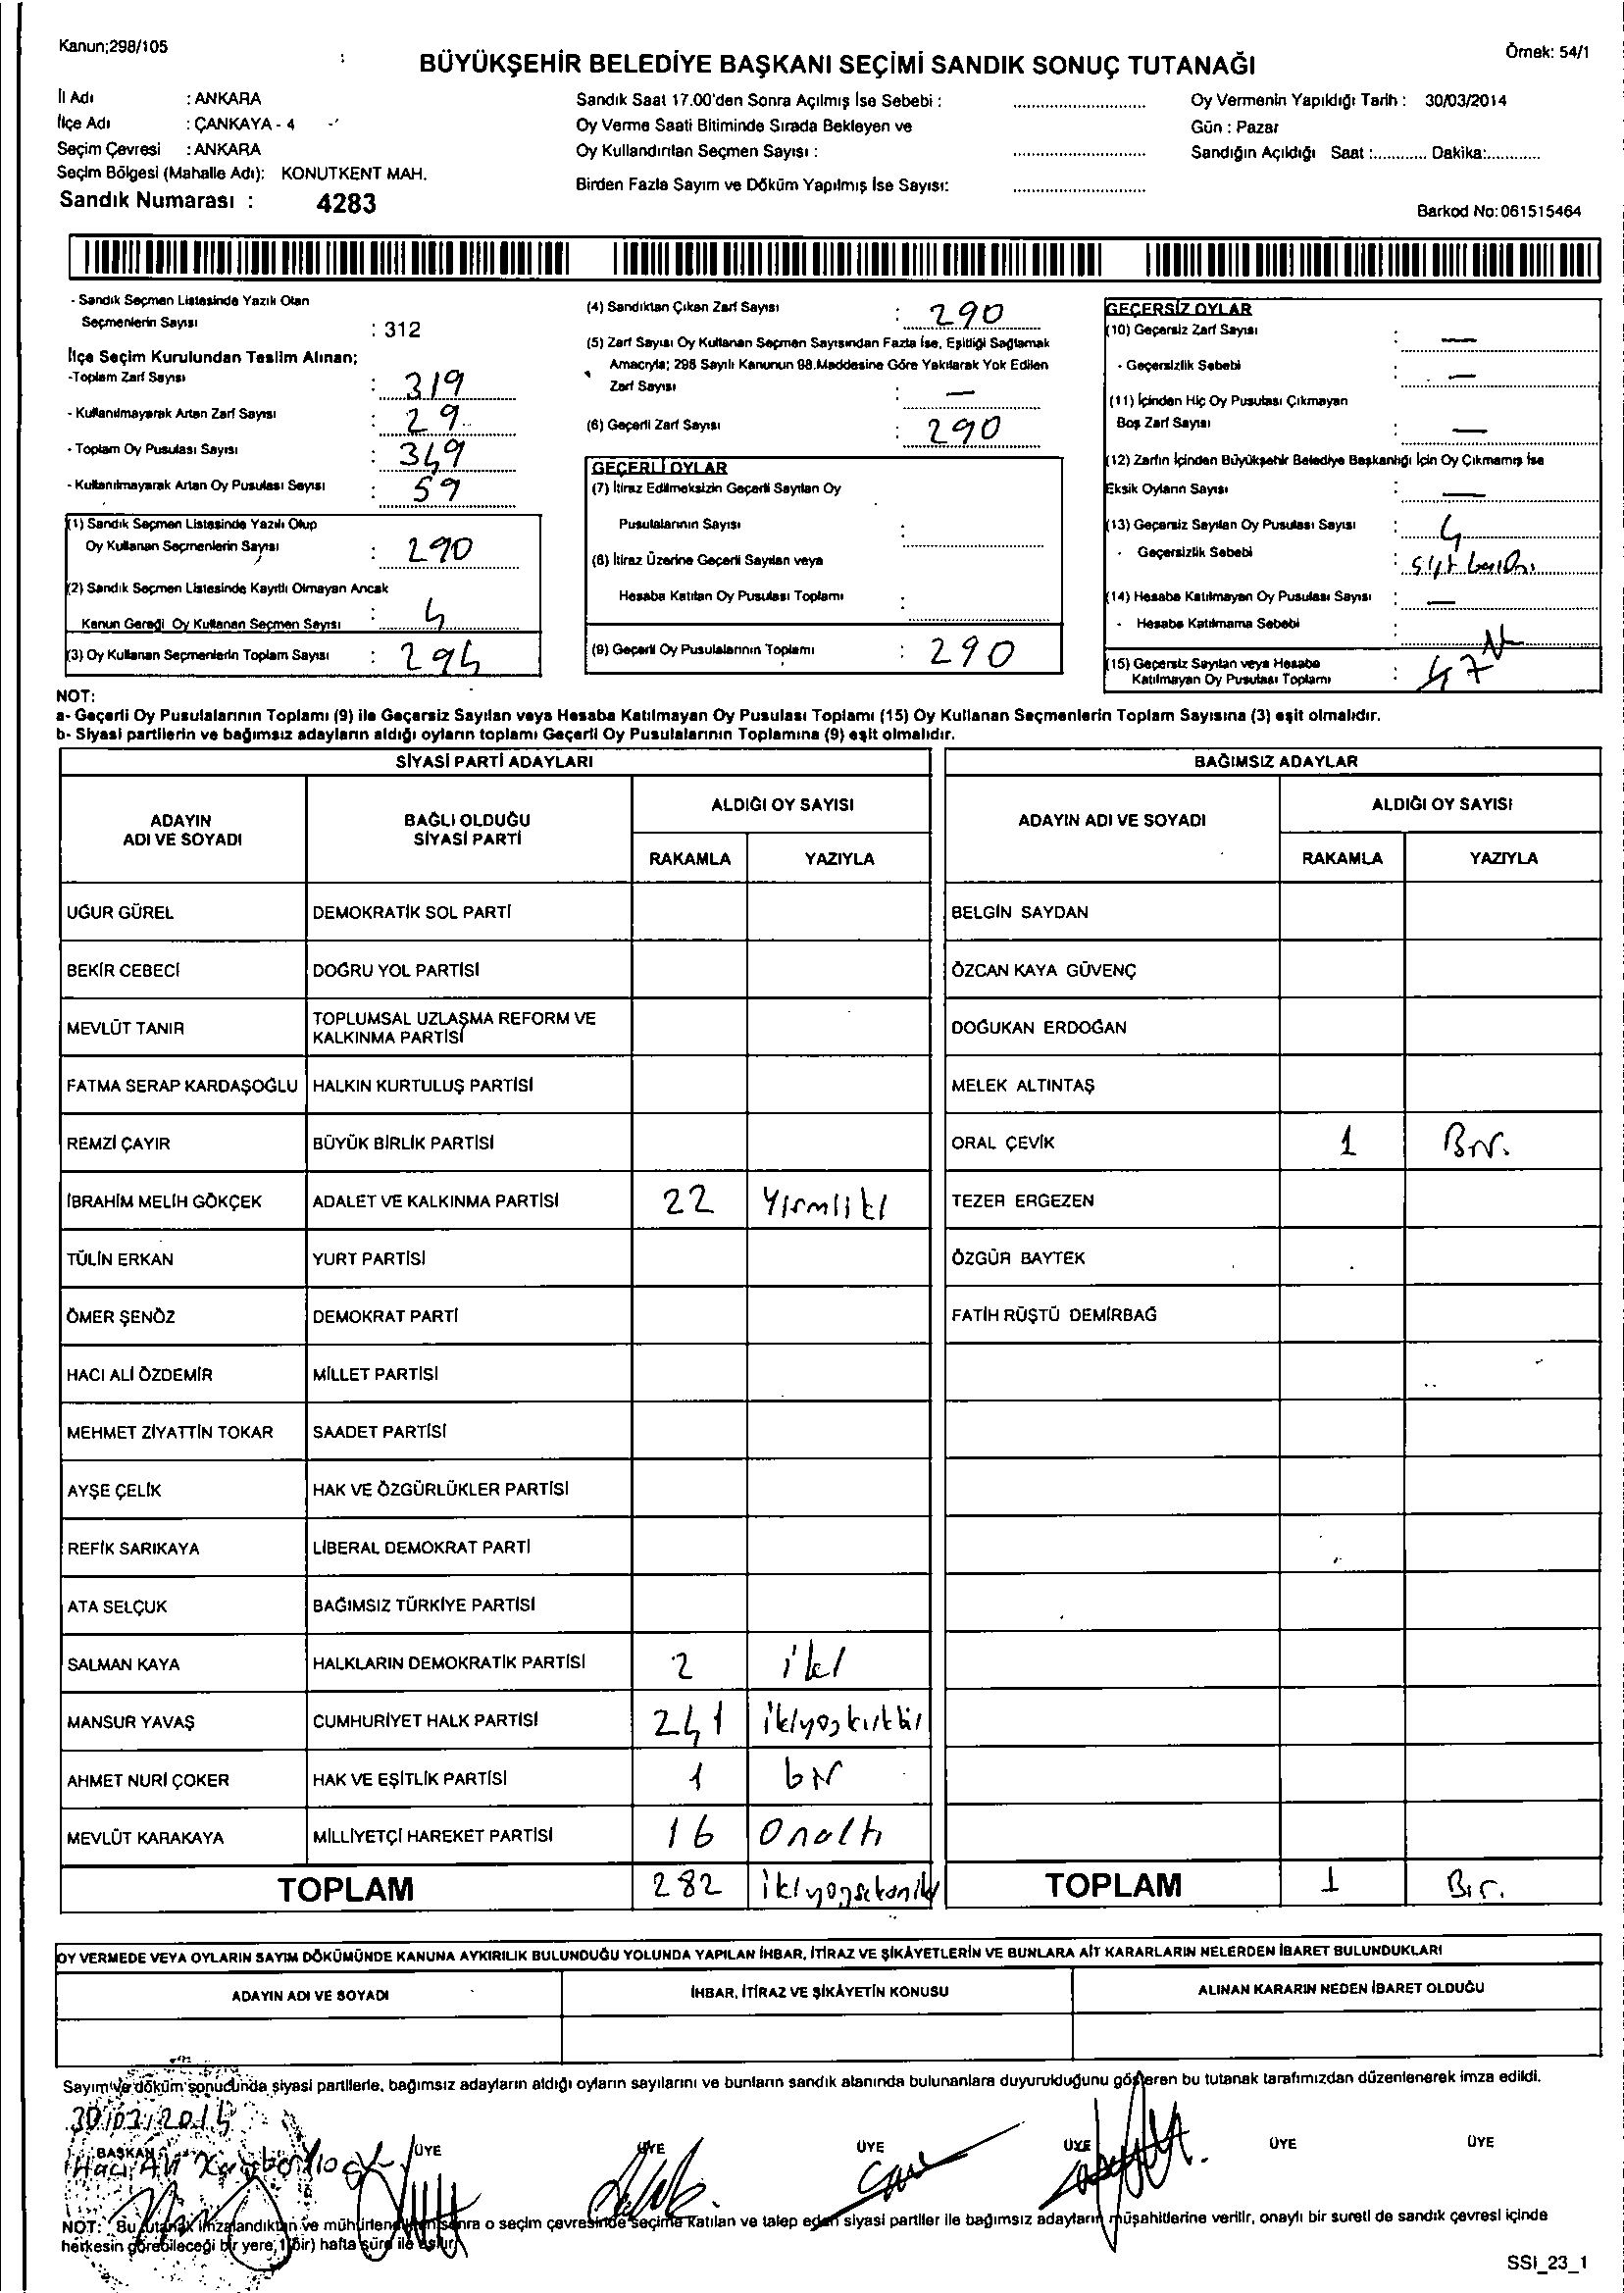 Kanun;298/105
Örnek: 54/1
BÜYÜKŞEHİR BELEDİYE BAŞKANI SEÇİMİ SANDIK SONUÇ TUTANAĞI
İl Adı : ANKARA
İlçe Adı : ÇANKAYA - 4
Seçim Çevresi : ANKARA
Seçim Bölgesi (Mahalle Adı): KONUTKENT MAH.
Sandık Numarası : 4283
Sandık Saat 17.00'den Sonra Açılmış İse Sebebi :
Oy Verme Saati Bitiminde Sırada Bekleyen ve
Oy Kullandırılan Seçmen Sayısı :
Birden Fazla Sayım ve Döküm Yapılmış İse Sayısı:
Oy Vermenin Yapıldığı Tarih : 30/03/2014
Gün : Pazar
Sandığın Açıldığı Saat :............ Dakika:............
Barkod No:061515464
- Sandık Seçmen Listesinde Yazılı Olan
Seçmenlerin Sayısı : 312
İlçe Seçim Kurulundan Teslim Alınan;
-Toplam Zarf Sayısı : 319
- Kullanılmayarak Artan Zarf Sayısı : 29
- Toplam Oy Pusulası Sayısı : 349
- Kullanılmayarak Artan Oy Pusulası Sayısı : 59
(1) Sandık Seçmen Listesinde Yazılı Olup
Oy Kullanan Seçmenlerin Sayısı : 290
(2) Sandık Seçmen Listesinde Kayıtlı Olmayan Ancak
Kanun Gereği Oy Kullanan Seçmen Sayısı : 4
(3) Oy Kullanan Seçmenlerin Toplam Sayısı : 294
(4) Sandıktan Çıkan Zarf Sayısı : 290
(5) Zarf Sayısı Oy Kullanan Seçmen Sayısından Fazla İse, Eşitliği Sağlamak
Amacıyla; 298 Sayılı Kanunun 98.Maddesine Göre Yakılarak Yok Edilen
Zarf Sayısı : —
(6) Geçerli Zarf Sayısı : 290
GEÇERLİ OYLAR
(7) İtiraz Edilmeksizin Geçerli Sayılan Oy
Pusulalarının Sayısı :
(8) İtiraz Üzerine Geçerli Sayılan veya
Hesaba Katılan Oy Pusulası Toplamı :
(9) Geçerli Oy Pusulalarının Toplamı : 290
GEÇERSİZ OYLAR
(10) Geçersiz Zarf Sayısı : —
- Geçersizlik Sebebi : —
(11) İçinden Hiç Oy Pusulası Çıkmayan
Boş Zarf Sayısı : —
(12) Zarfın İçinden Büyükşehir Belediye Başkanlığı İçin Oy Çıkmamış İse
Eksik Oyların Sayısı : —
(13) Geçersiz Sayılan Oy Pusulası Sayısı : 4
- Geçersizlik Sebebi :
(14) Hesaba Katılmayan Oy Pusulası Sayısı : —
- Hesaba Katılmama Sebebi :
(15) Geçersiz Sayılan veya Hesaba
Katılmayan Oy Pusulası Toplamı : 47
NOT:
a- Geçerli Oy Pusulalarının Toplamı (9) ile Geçersiz Sayılan veya Hesaba Katılmayan Oy Pusulası Toplamı (15) Oy Kullanan Seçmenlerin Toplam Sayısına (3) eşit olmalıdır.
b- Siyasi partilerin ve bağımsız adayların aldığı oyların toplamı Geçerli Oy Pusulalarının Toplamına (9) eşit olmalıdır.
SİYASİ PARTİ ADAYLARI
ADAYIN ADI VE SOYADI
BAĞLI OLDUĞU SİYASİ PARTİ
ALDIĞI OY SAYISI
RAKAMLA YAZIYLA
UĞUR GÜREL DEMOKRATİK SOL PARTİ
BEKİR CEBECİ DOĞRU YOL PARTİSİ
MEVLÜT TANIR TOPLUMSAL UZLAŞMA REFORM VE
KALKINMA PARTİSİ
FATMA SERAP KARDAŞOĞLU HALKIN KURTULUŞ PARTİSİ
REMZİ ÇAYIR BÜYÜK BİRLİK PARTİSİ
İBRAHİM MELİH GÖKÇEK ADALET VE KALKINMA PARTİSİ 22 Yirmiiki
TÜLİN ERKAN YURT PARTİSİ
ÖMER ŞENÖZ DEMOKRAT PARTİ
HACI ALİ ÖZDEMİR MİLLET PARTİSİ
MEHMET ZİYATTİN TOKAR SAADET PARTİSİ
AYŞE ÇELİK HAK VE ÖZGÜRLÜKLER PARTİSİ
REFİK SARIKAYA LİBERAL DEMOKRAT PARTİ
ATA SELÇUK BAĞIMSIZ TÜRKİYE PARTİSİ
SALMAN KAYA HALKLARIN DEMOKRATİK PARTİSİ 2 iki
MANSUR YAVAŞ CUMHURİYET HALK PARTİSİ 241 ikiyüzkırkbir
AHMET NURİ ÇOKER HAK VE EŞİTLİK PARTİSİ 1 bir
MEVLÜT KARAKAYA MİLLİYETÇİ HAREKET PARTİSİ 16 Onaltı
TOPLAM 282 ikiyüzsekseniki
BAĞIMSIZ ADAYLAR
ADAYIN ADI VE SOYADI
ALDIĞI OY SAYISI
RAKAMLA YAZIYLA
BELGİN SAYDAN
ÖZCAN KAYA GÜVENÇ
DOĞUKAN ERDOĞAN
MELEK ALTINTAŞ
ORAL ÇEVİK 1 Bir.
TEZER ERGEZEN
ÖZGÜR BAYTEK
FATİH RÜŞTÜ DEMİRBAĞ
TOPLAM 1 Bir.
OY VERMEDE VEYA OYLARIN SAYIM DÖKÜMÜNDE KANUNA AYKIRILIK BULUNDUĞU YOLUNDA YAPILAN İHBAR, İTİRAZ VE ŞİKÂYETLERİN VE BUNLARA AİT KARARLARIN NELERDEN İBARET BULUNDUKLARI
ADAYIN ADI VE SOYADI İHBAR, İTİRAZ VE ŞİKÂYETİN KONUSU ALINAN KARARIN NEDEN İBARET OLDUĞU
Sayım ve döküm sonucunda siyasi partilerle, bağımsız adayların aldığı oyların sayılarını ve bunların sandık alanında bulunanlara duyurulduğunu gösteren bu tutanak tarafımızdan düzenlenerek imza edildi.
30/03/2014
BAŞKAN ÜYE ÜYE ÜYE ÜYE ÜYE ÜYE
Hacı Ali
NOT: Bu tutanak imzalandıktan ve mühürlendikten sonra o seçim çevresinde seçime katılan ve talep eden siyasi partiler ile bağımsız adayların müşahitlerine verilir, onaylı bir sureti de sandık çevresi içinde
herkesin görebileceği bir yere, 1(bir) hafta süre ile asılır.
SSI_23_1